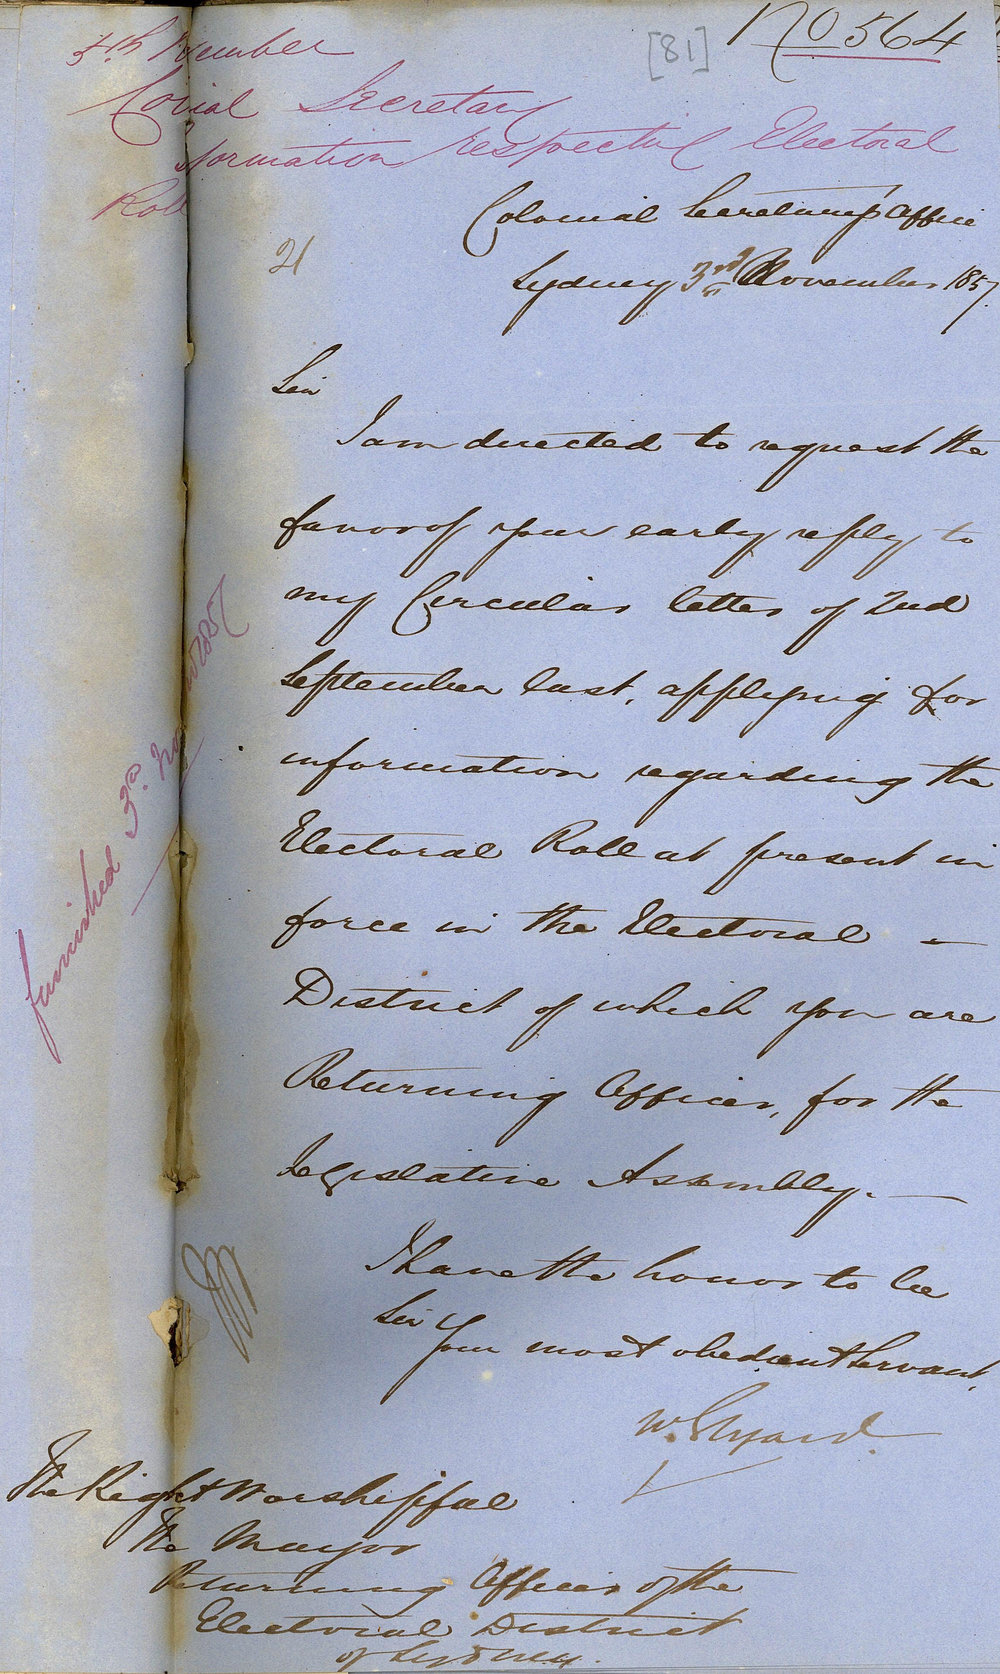 No 564
[81]
5th November
Colonial Secretary
Information respecting Electoral
Roll
Colonial Secretary's Office
Sydney 3rd November 1857.
21
Sir
I am directed to request the
favor of your early reply to
my Circular letter of 2nd
September last, applying for
information regarding the
Electoral Roll at present in
force in the Electoral —
District of which you are
Returning Officer, for the
Legislative Assembly. —
I have the honor to be
Sir
Your most obedient Servant,
W. Elyard
The Right Worshipful
The Mayor
Returning Officer of the
Electoral District
of Sydney.
furnished 3rd Nov 1857